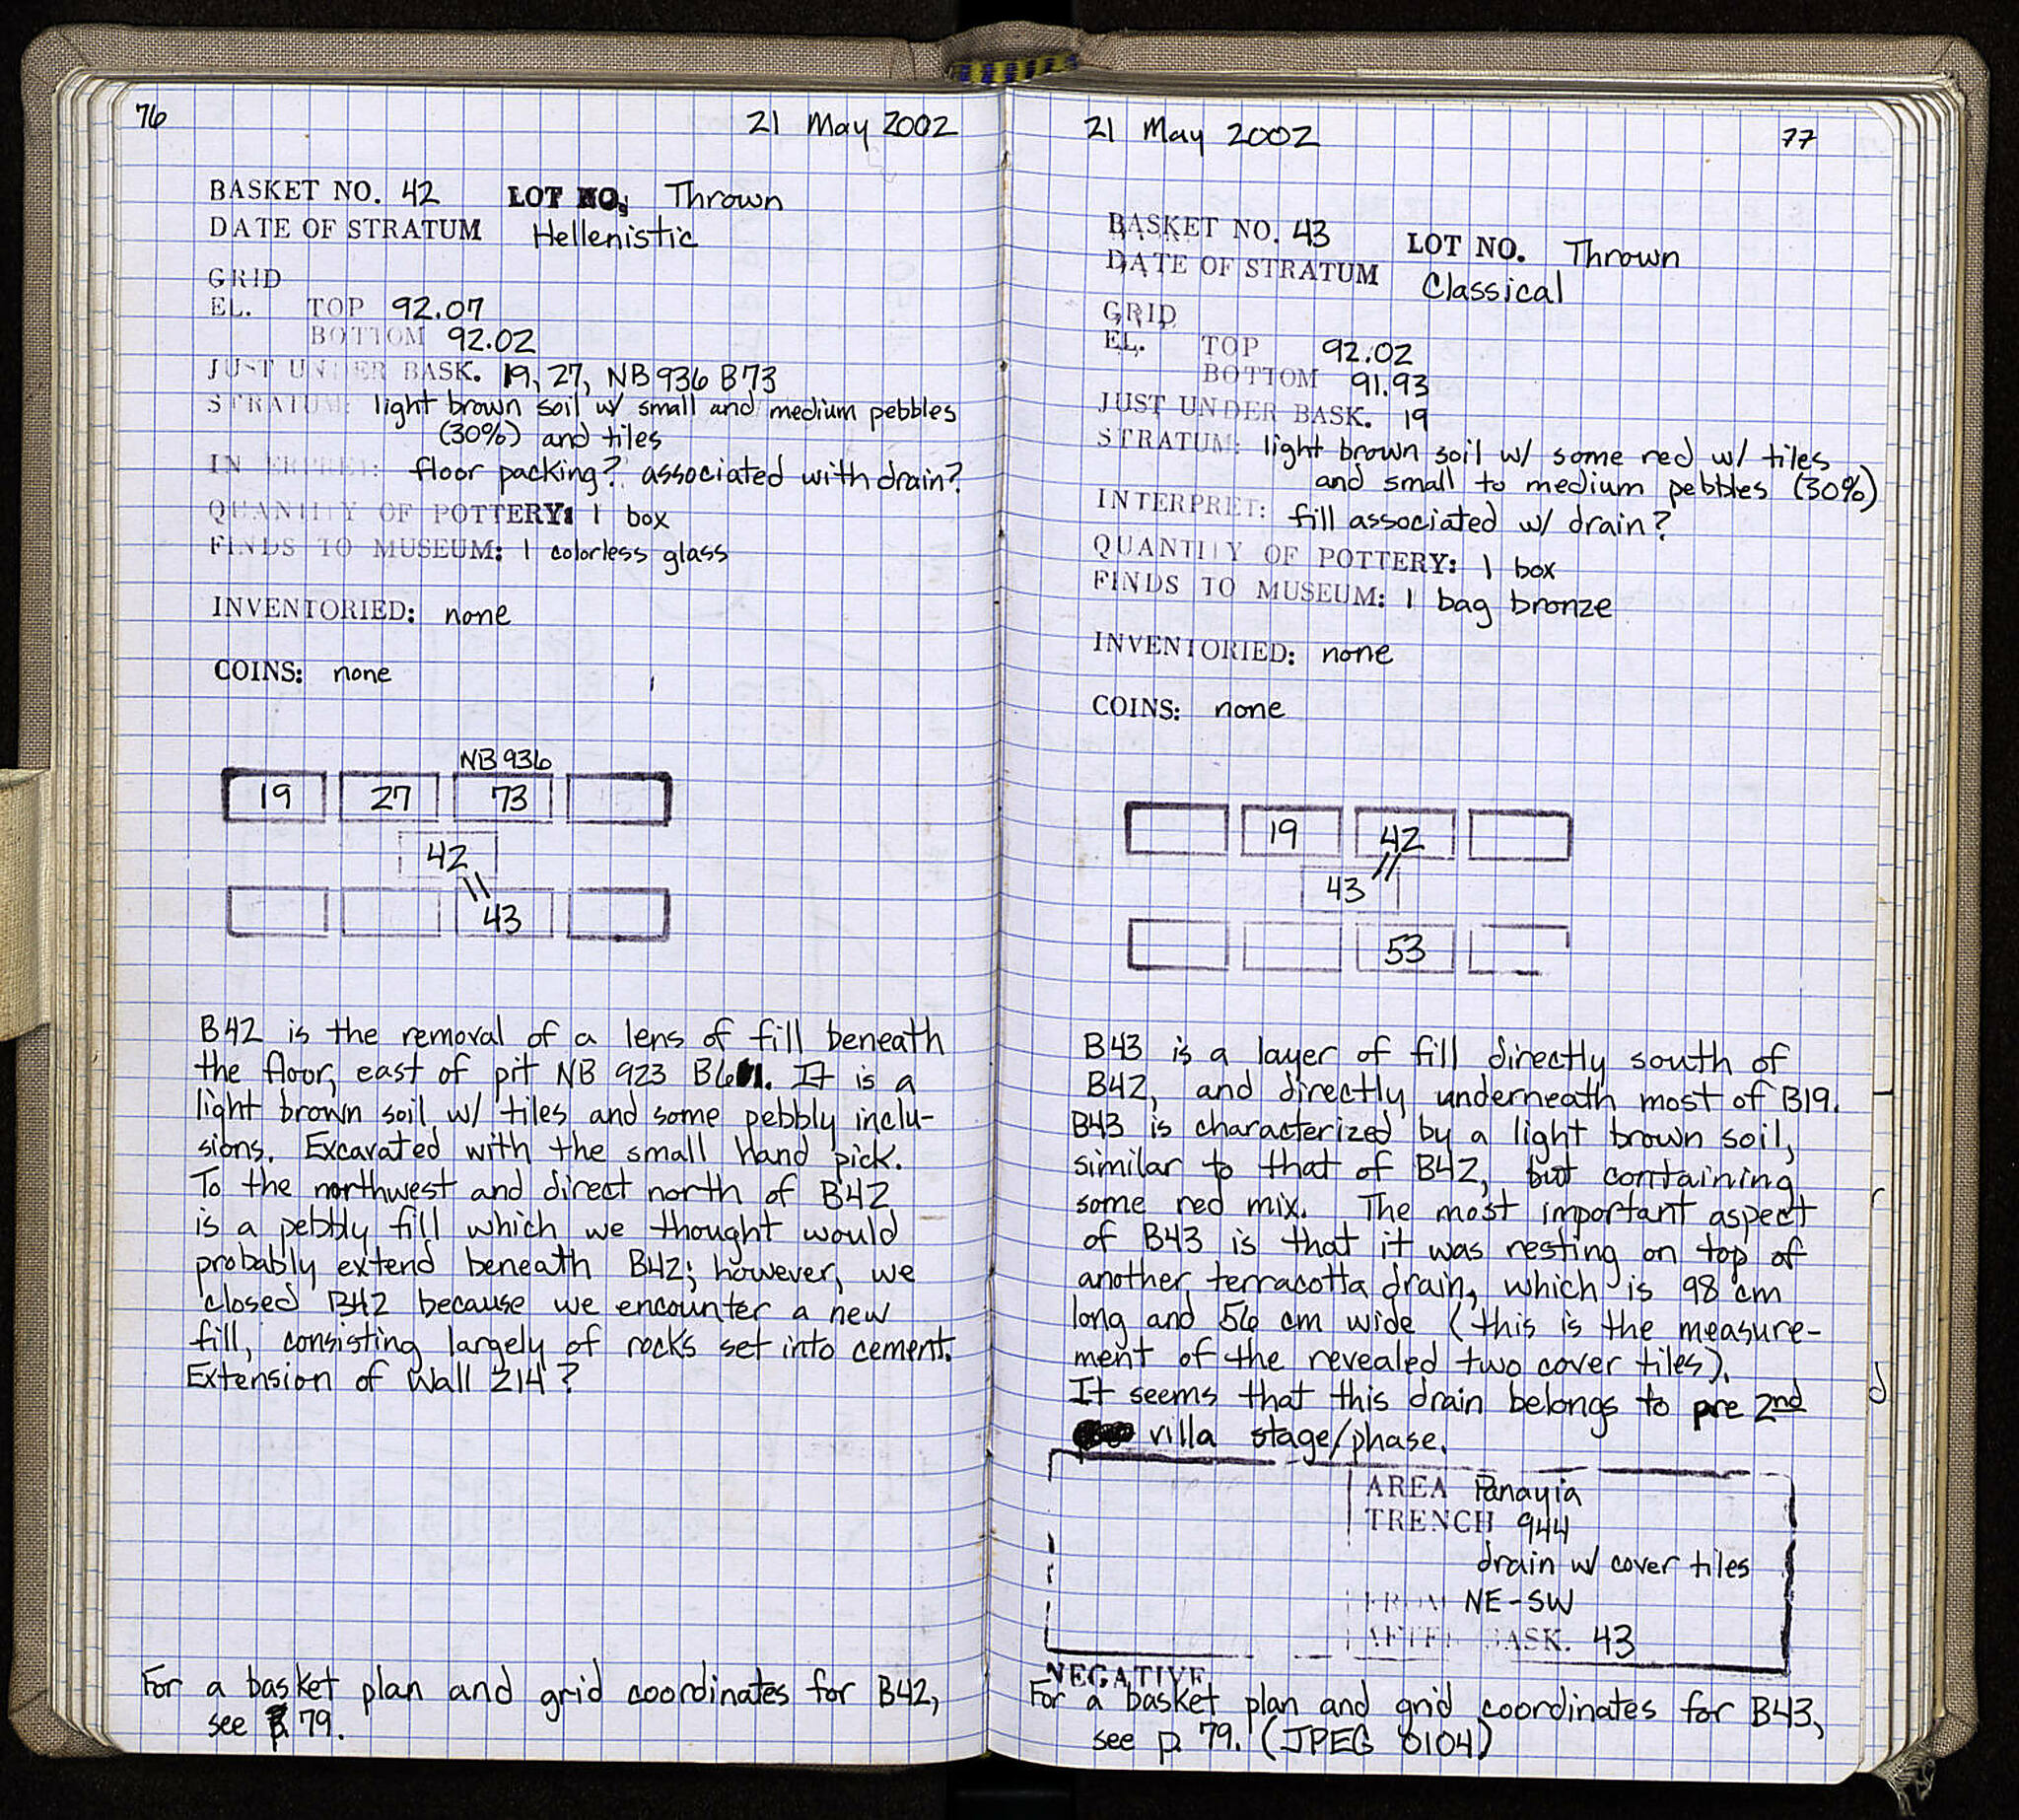 76
21 May 2002
BASKET NO. 42 LOT NO. Thrown
DATE OF STRATUM Hellenistic
GRID
EL. TOP 92.07
BOTTOM 92.02
JUST UNDER BASK. 19, 27, NB 936 B73
STRATUM: light brown soil w/ small and medium pebbles
(30%) and tiles
INTERPRET: floor packing? associated with drain?
QUANTITY OF POTTERY: 1 box
FINDS TO MUSEUM: 1 colorless glass
INVENTORIED: none
COINS: none
NB 936
19 27 73
42
43
B42 is the removal of a lens of fill beneath
the floor, east of pit NB 923 . It is a
light brown soil w/ tiles and some pebbly inclu-
sions. Excavated with the small hand pick.
To the northwest and direct north of B42
is a pebbly fill which we thought would
probably extend beneath B42; however, we
closed B42 because we encounter a new
fill, consisting largely of rocks set into cement.
Extension of Wall 214?
For a basket plan and grid coordinates for B42,
see p. 79.
21 May 2002
77
BASKET NO. 43 LOT NO. Thrown
DATE OF STRATUM Classical
GRID
EL. TOP 92.02
BOTTOM 91.93
JUST UNDER BASK. 19
STRATUM: light brown soil w/ some red w/ tiles
and small to medium pebbles (30%)
INTERPRET: fill associated w/ drain?
QUANTITY OF POTTERY: 1 box
FINDS TO MUSEUM: 1 bag bronze
INVENTORIED: none
COINS: none
19 42
43
53
B43 is a layer of fill directly south of
B42, and directly underneath most of B19.
B43 is characterized by a light brown soil,
similar to that of B42, but containing
some red mix. The most important aspect
of B43 is that it was resting on top of
another terracotta drain, which is 98 cm
long and 56 cm wide (this is the measure-
ment of the revealed two cover tiles).
It seems that this drain belongs to pre 2nd
villa stage/phase.
AREA Panayia
TRENCH 944
drain w/ cover tiles
FROM NE-SW
AFTER BASK. 43
NEGATIVE
For a basket plan and grid coordinates for B43,
see p. 79. (JPEG 0104)